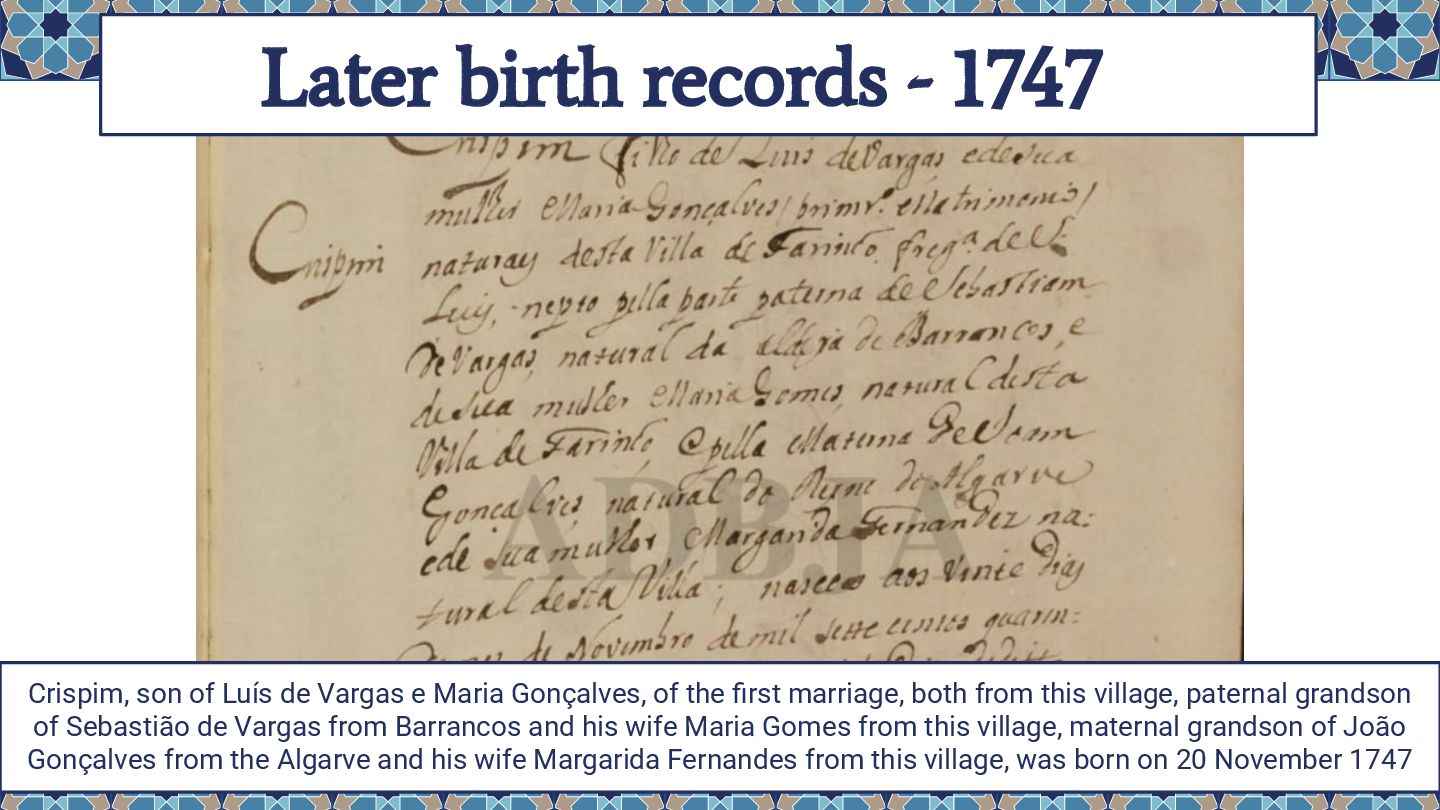 Later birth records - 1747
Crispim filho de Luis de Vargas e de sua
mulher Maria Gonçalves / primr.º Matrimonio /
Crispim
naturaes desta Villa de Farinho, freg.ª de S.
Luis, nepto pella parte paterna de Sebastiam
de Vargas, natural da aldeya de Barrancos, e
de sua mulher Maria Gomes, natural desta
Villa de Farinho, e pella Materna de Joam
Gonçalves natural do Reino do Algarve
e de sua mulher Margarida Fernandez na:
tural desta Villa; nasceo aos vinte dias
de Novembro de mil sette centos quaren:
ADBJA
Crispim, son of Luís de Vargas e Maria Gonçalves, of the first marriage, both from this village, paternal grandson
of Sebastião de Vargas from Barrancos and his wife Maria Gomes from this village, maternal grandson of João
Gonçalves from the Algarve and his wife Margarida Fernandes from this village, was born on 20 November 1747